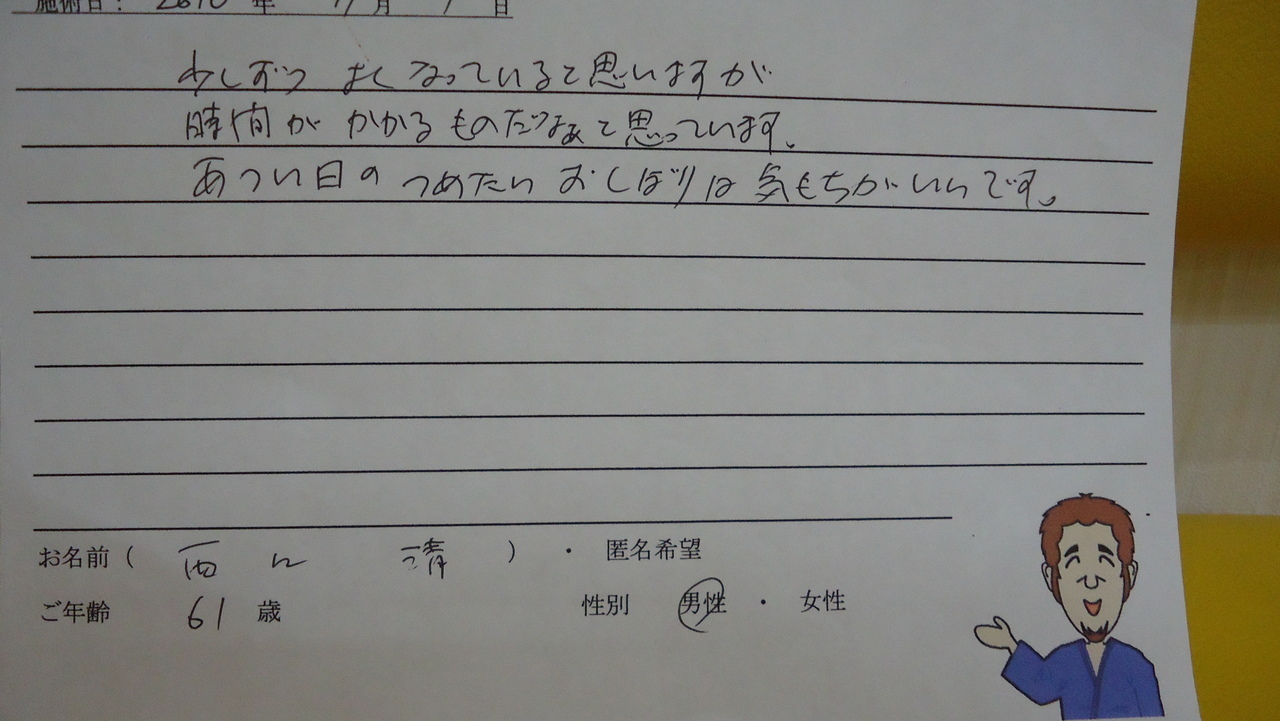 施術日： 2010 年 月 日
少しずつ よくなっていると思いますが
時間が かかるものだなぁと思っています。
あつい日の つめたい おしぼりは 気もちがいいです。
お名前（ 西 清 ） ・ 匿名希望
ご年齢 61 歳 性別 男性 ・ 女性